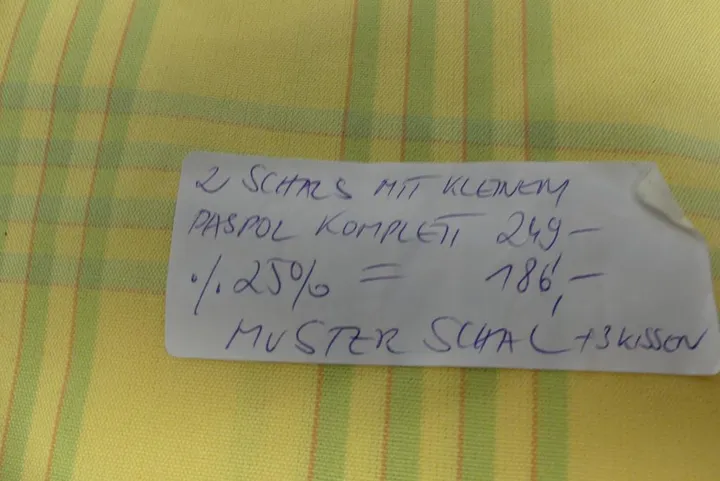 2 SCHALS MIT KLEINEM
PASPOL KOMPLETT 249,-
./. 25% = 186,-
MUSTER SCHAL + 3 KISSEN